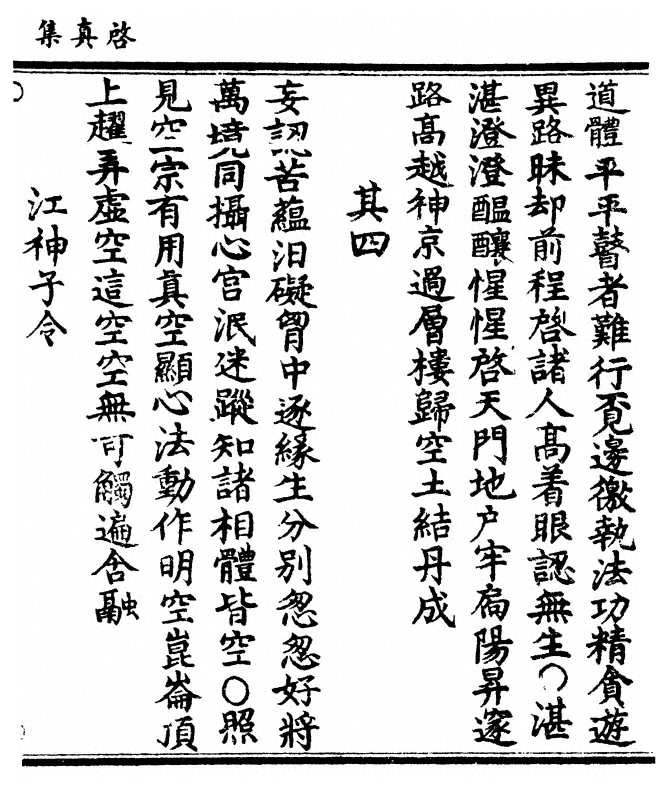 啓真集
道體平平瞽者難行覔邊徼執法功精貪遊
異路昧却前程啓諸人髙着眼認無生〇湛
湛澄澄醖釀惺惺啓天門地户牢扃陽昇邃
路髙越神京過層樓歸空土結丹成
其四
妄認苦蘊汨礙胷中逐緣生分别怱怱好將
萬境同攝心宫泯迷蹤知諸相體皆空〇照
見空宗有用真空顯心法動作明空崑崙頂
上趯弄虛空這空空無可觸遍含融
江神子令